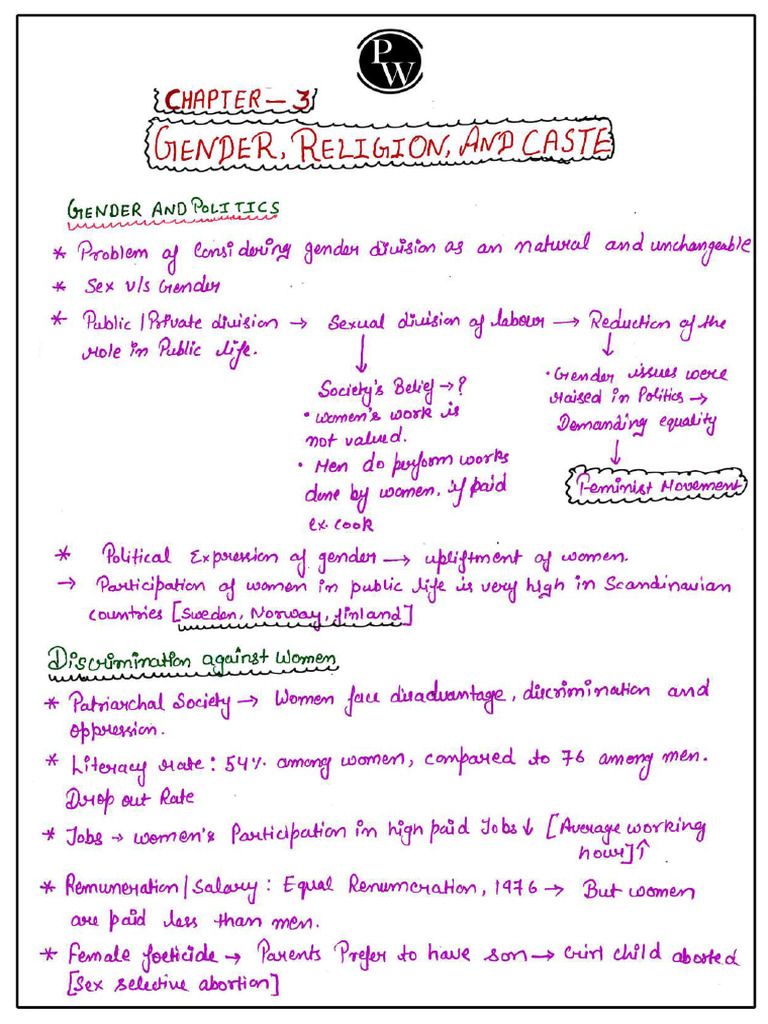 PW
CHAPTER - 3
GENDER, RELIGION, AND CASTE
GENDER AND POLITICS
* Problem of Considering gender division as an natural and unchangeable
* Sex v/s Gender
* Public / Private division → Sexual division of labour → Reduction of the
role in Public life.
↓
Society's Belief → ?
• women's work is
not valued.
• Men do perform works
done by women, if paid
ex. cook
↓
• Gender issues were
raised in Politics →
Demanding equality
↓
Feminist Movement
* Political Expression of gender → upliftment of women.
→ Participation of women in public life is very high in Scandinavian
countries [Sweden, Norway, finland]
Discrimination against Women
* Patriarchal Society → Women face disadvantage, discrimination and
oppression.
* Literacy rate : 54% among women, compared to 76 among men.
Drop out Rate
* Jobs → women's Participation in high paid Jobs ↓ [Average working
hour] ↑
* Remuneration / Salary : Equal Renumeration, 1976 → But women
are paid less than men.
* Female foeticide → Parents Prefer to have son → Girl child aborted
[Sex selective abortion]